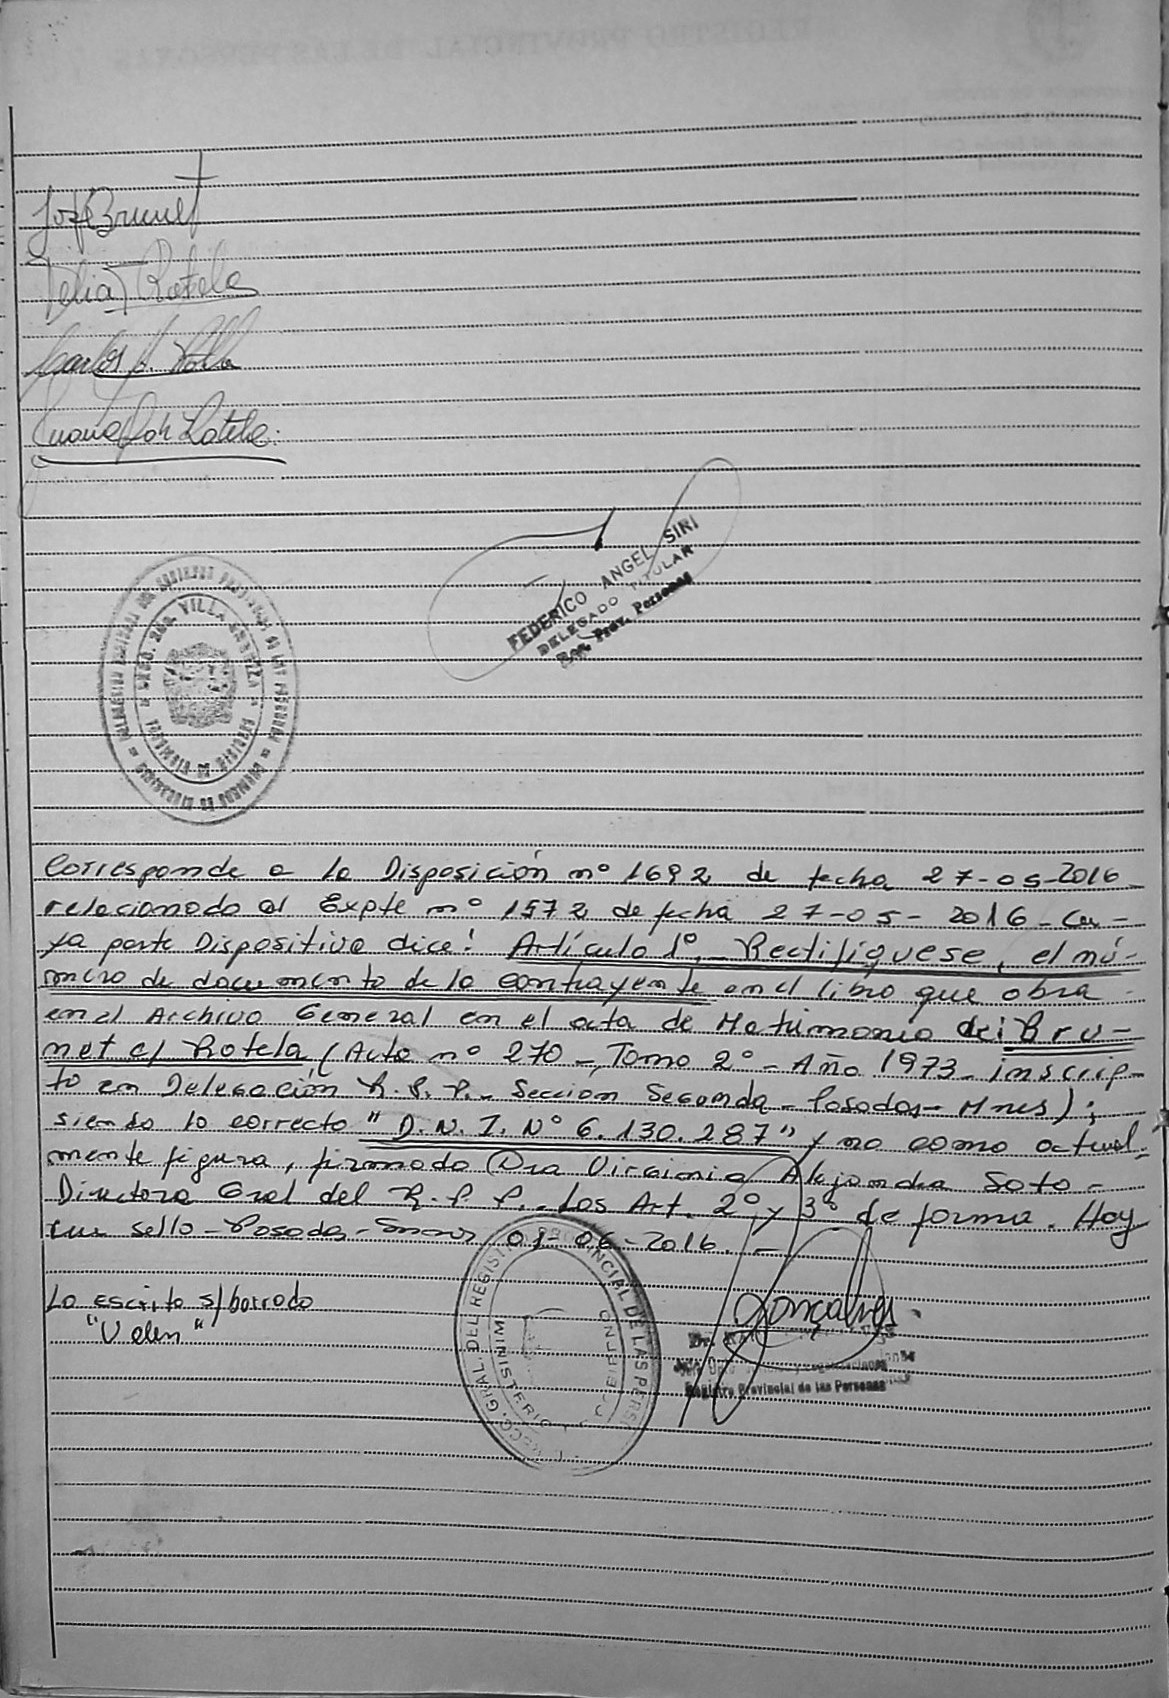 José Brunet
Rotela
Carlos
Rotela
FEDERICO ANGEL SIRI
DELEGADO TITULAR
Reg. Prov. Personas
VILLA
Corresponde a la Disposición nº 1692 de fecha 27-05-2016
relacionado al Expte nº 1572 de fecha 27-05-2016-Cu-
ya parte Dispositiva dice: Artículo 1º,- Rectifíquese, el nú-
mero de documento de la contrayente en el libro que obra
en el Archivo General en el acta de Matrimonio de: Bru-
net c/ Rotela, (Acta nº 270-, Tomo 2º- Año 1973- inscrip-
to en Delegación R.P.P.- Sección Segunda- Posadas- Mnes);
siendo lo correcto "D.N.I. Nº 6.130.287" y no como actual-
mente figura, firmado Dra Virginia Alejandra Soto-
Directora Gral del R.P.P.. Los Art. 2º y 3º de forma. Hoy
sello- Posadas- 01-06-2016.-
Lo escrito s/borrado
GRAL. DEL REGISTRO PROVINCIAL DE LAS PERS
MINISTERIO
GOBIERNO
Dr.
Registro Provincial de las Personas